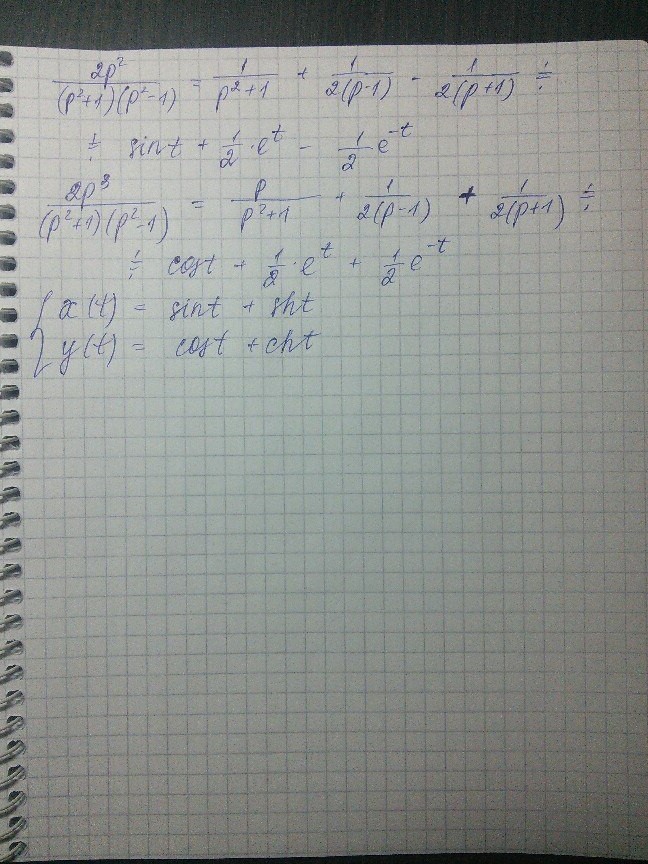 2p²/((p²+1)(p²-1)) = 1/(p²+1) + 1/(2(p-1)) - 1/(2(p+1)) ≓
≓ sint + 1/2 · e^t - 1/2 e^-t
2p³/((p²+1)(p²-1)) = p/(p²+1) + 1/(2(p-1)) + 1/(2(p+1)) ≓
≓ cost + 1/2 · e^t + 1/2 e^-t
{ x(t) = sint + sht
y(t) = cost + cht